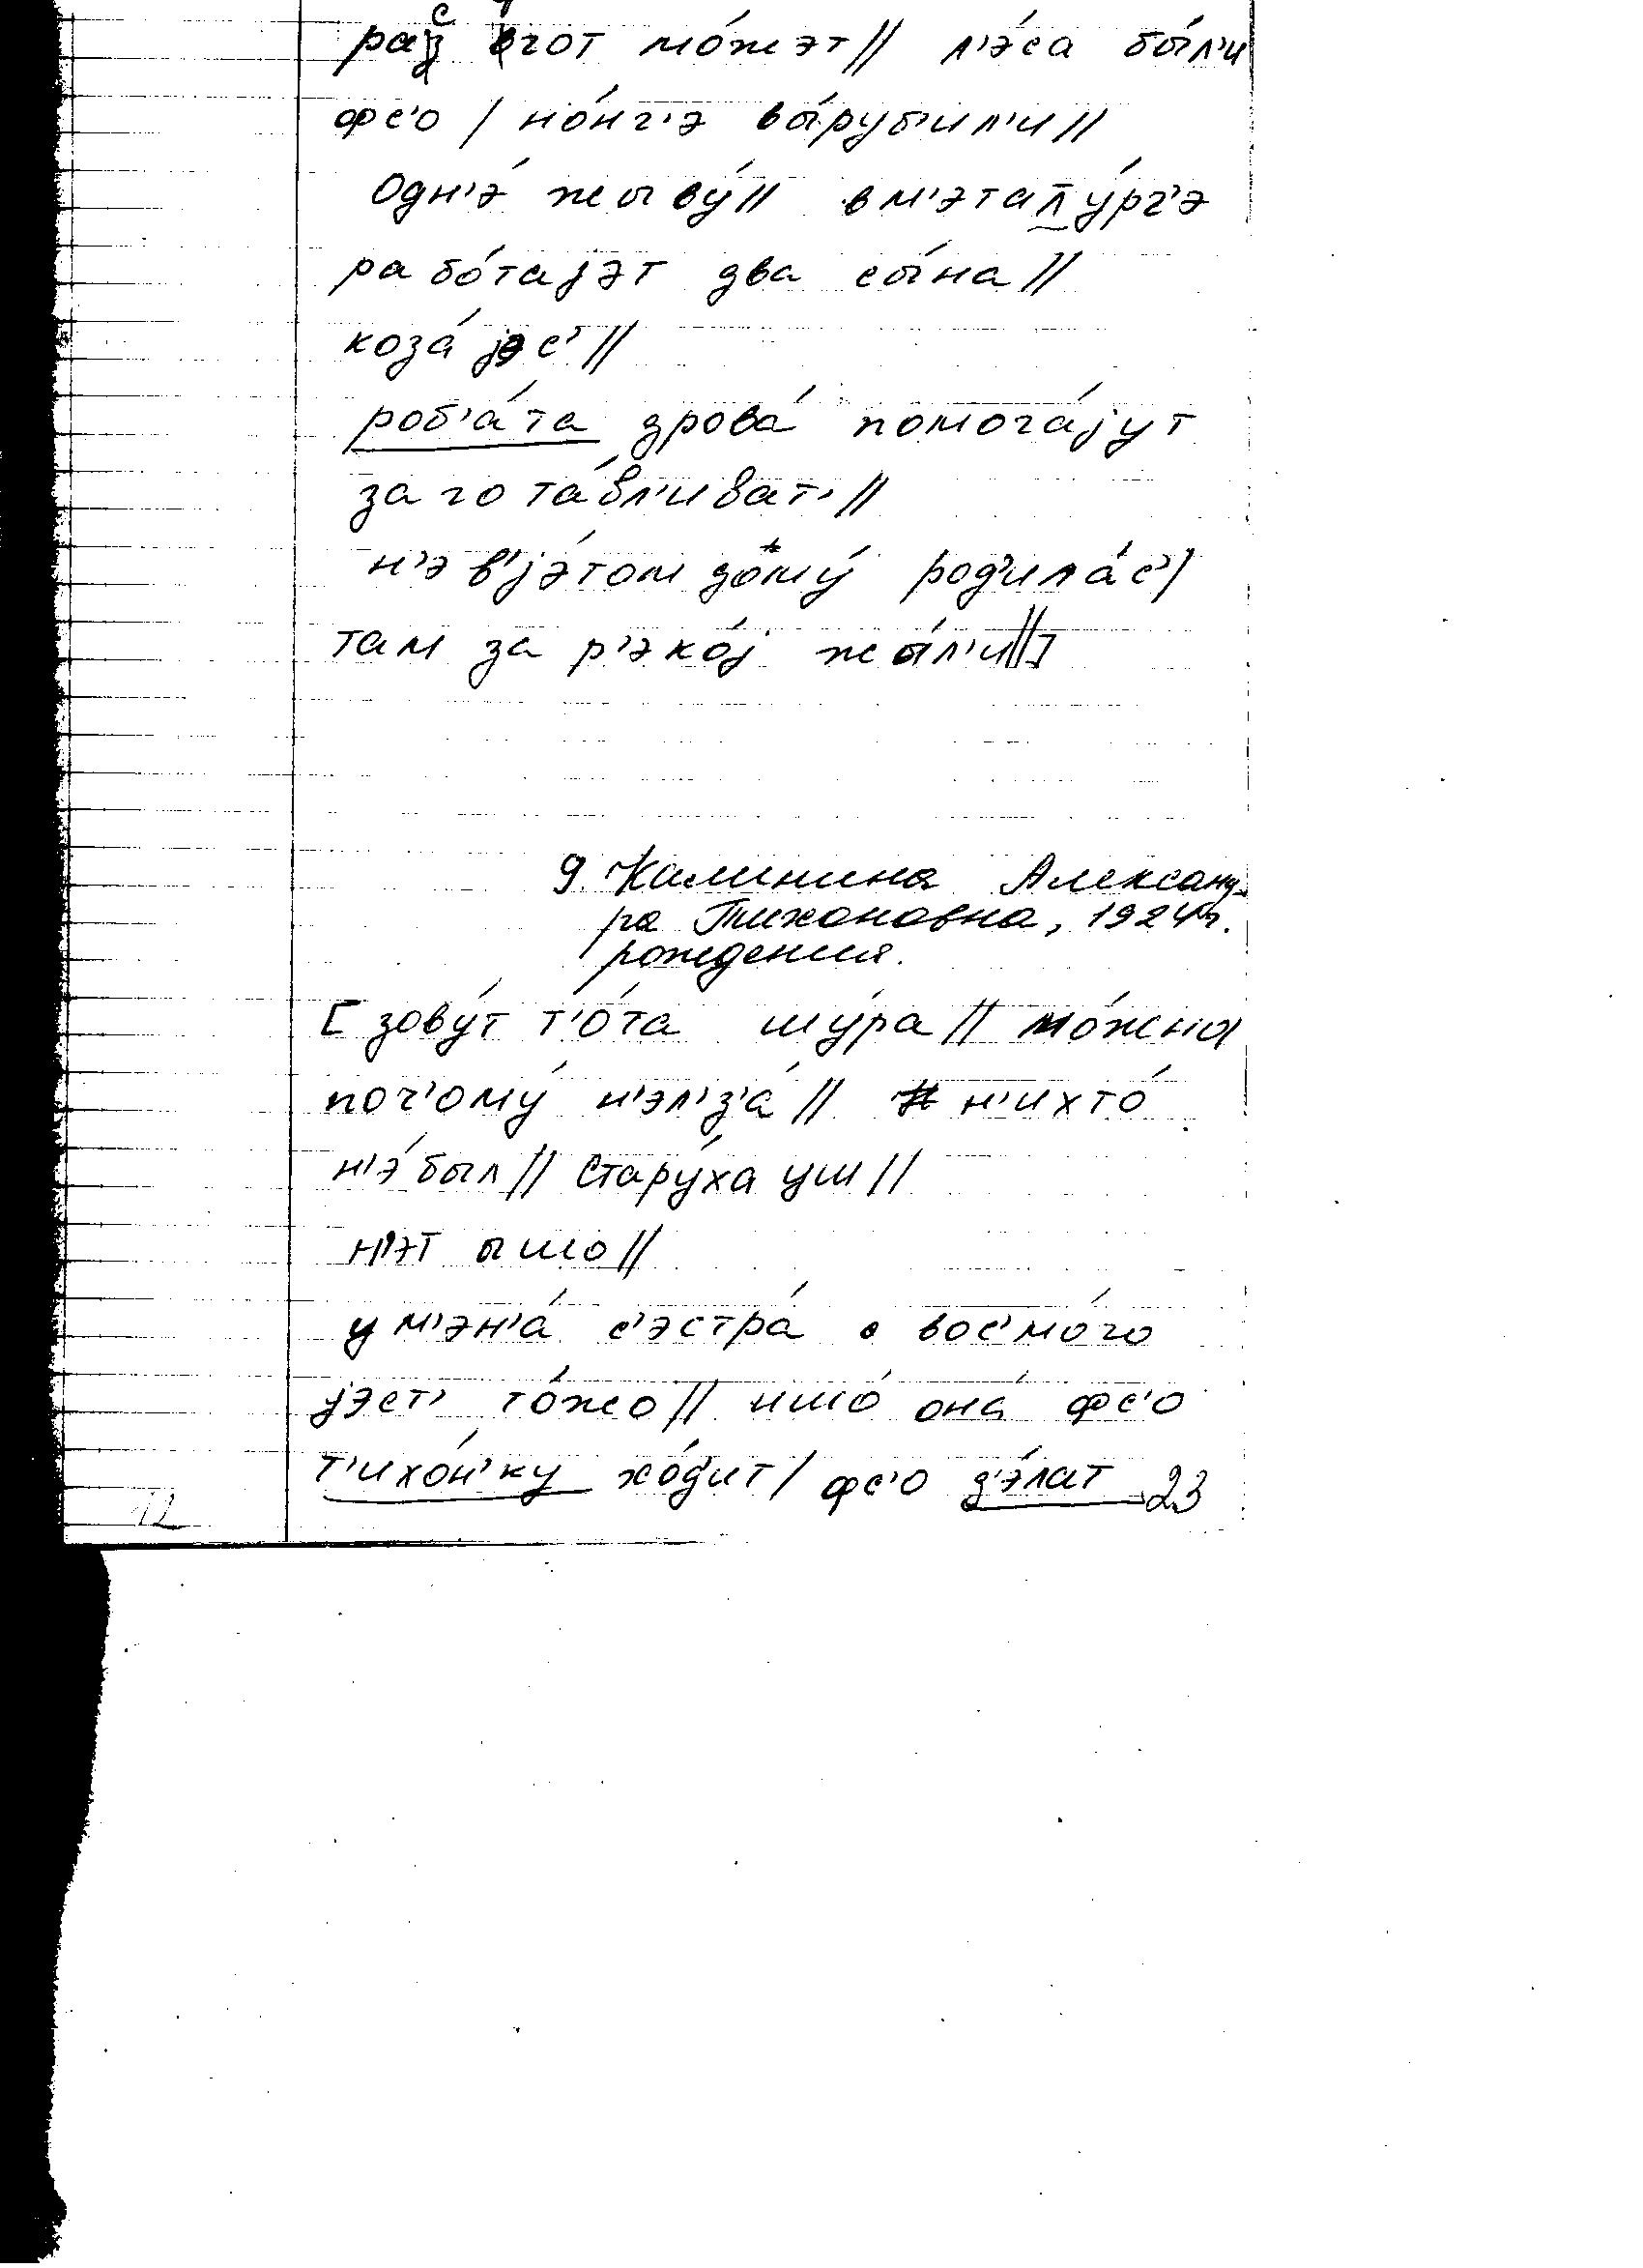 рас вгот мо́жэт// л'э́са бы́л'и
фс'о / но́нг'э вы́руб'ил'и//
Одн'э́ жыву́// в м'эталу́рг'э
рабо́таjэт два сы́на//
коза́ jэс'//
роб'а́та дрова́ помога́jут
загота́вл'иват'//
н'э в'jэ́том дому́ род'ила́с'/
там за р'эко́j жы́л'и//]
9. Калинина Александ-
ра Тихоновна, 1924 г.
рождения.
[ зову́т т'о́та шу́ра// мо́жна/
поч'ому́ н'эл'з'а́// н'ихто́
н'э́ был// Стару́ха уш//
н'эт ышо//
у м'эн'а́ с'эстра́ с вос'мо́го
jэст' то́жо// ишо́ она́ фс'о
т'ихо́н'ку хо́д'ит/ фс'о д'э́лат 23
12